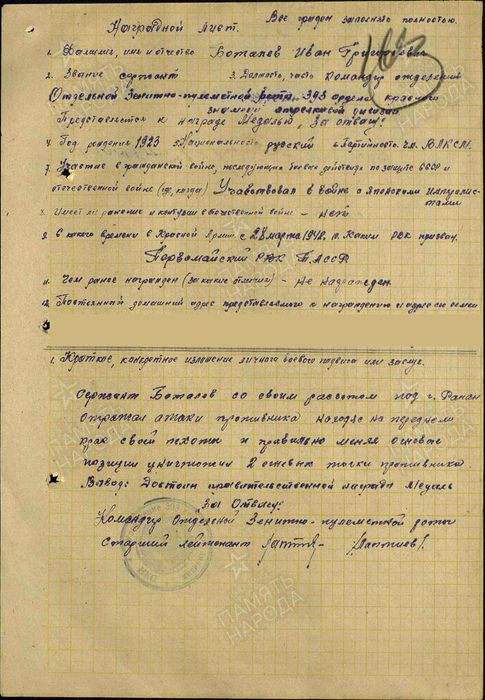 Все графы заполнять полностью.
Наградной лист.
1. Фамилия, имя и отчество Боталов Иван Григорьевич
2. Звание сержант 3. Должность, часть командир отделения
Отдельной Зенитно-пулеметной роты 393 ордена красного
знамени стрелковой дивизии
Представляется к награде Медалью "За отвагу"
4. Год рождения 1923 5. Национальность русский 6. Партийность чл. ВЛКСМ.
7. Участие в гражданской войне, последующих боевых действиях по защите СССР и
отечественной войне (где, когда) Участвовал в войне с японскими империалис-
тами
8. Имеет ли ранения и контузии в отечественной войне - нет
9. С какого времени в Красной Армии с 28 марта 1942 г. 10. Каким РВК призван
Первомайский РВК БАССР
11. Чем ранее награжден (за какие отличия) - не награжден
12. Постоянный домашний адрес представляемого к награждению и адрес его семьи
1. Краткое, конкретное изложение личного боевого подвига или заслуг.
сержант Боталов со своим расчетом под г.
отражал атаки противника находясь на переднем
крае своей пехоты и правильно меняя огневые
позиции уничтожил 2 огневых точки противника.
Вывод: Достоин правительственной награды Медаль
"За Отвагу"
Командир Отдельной Зенитно-пулеметной роты
Старший лейтенант
ПАМЯТЬ
НАРОДА